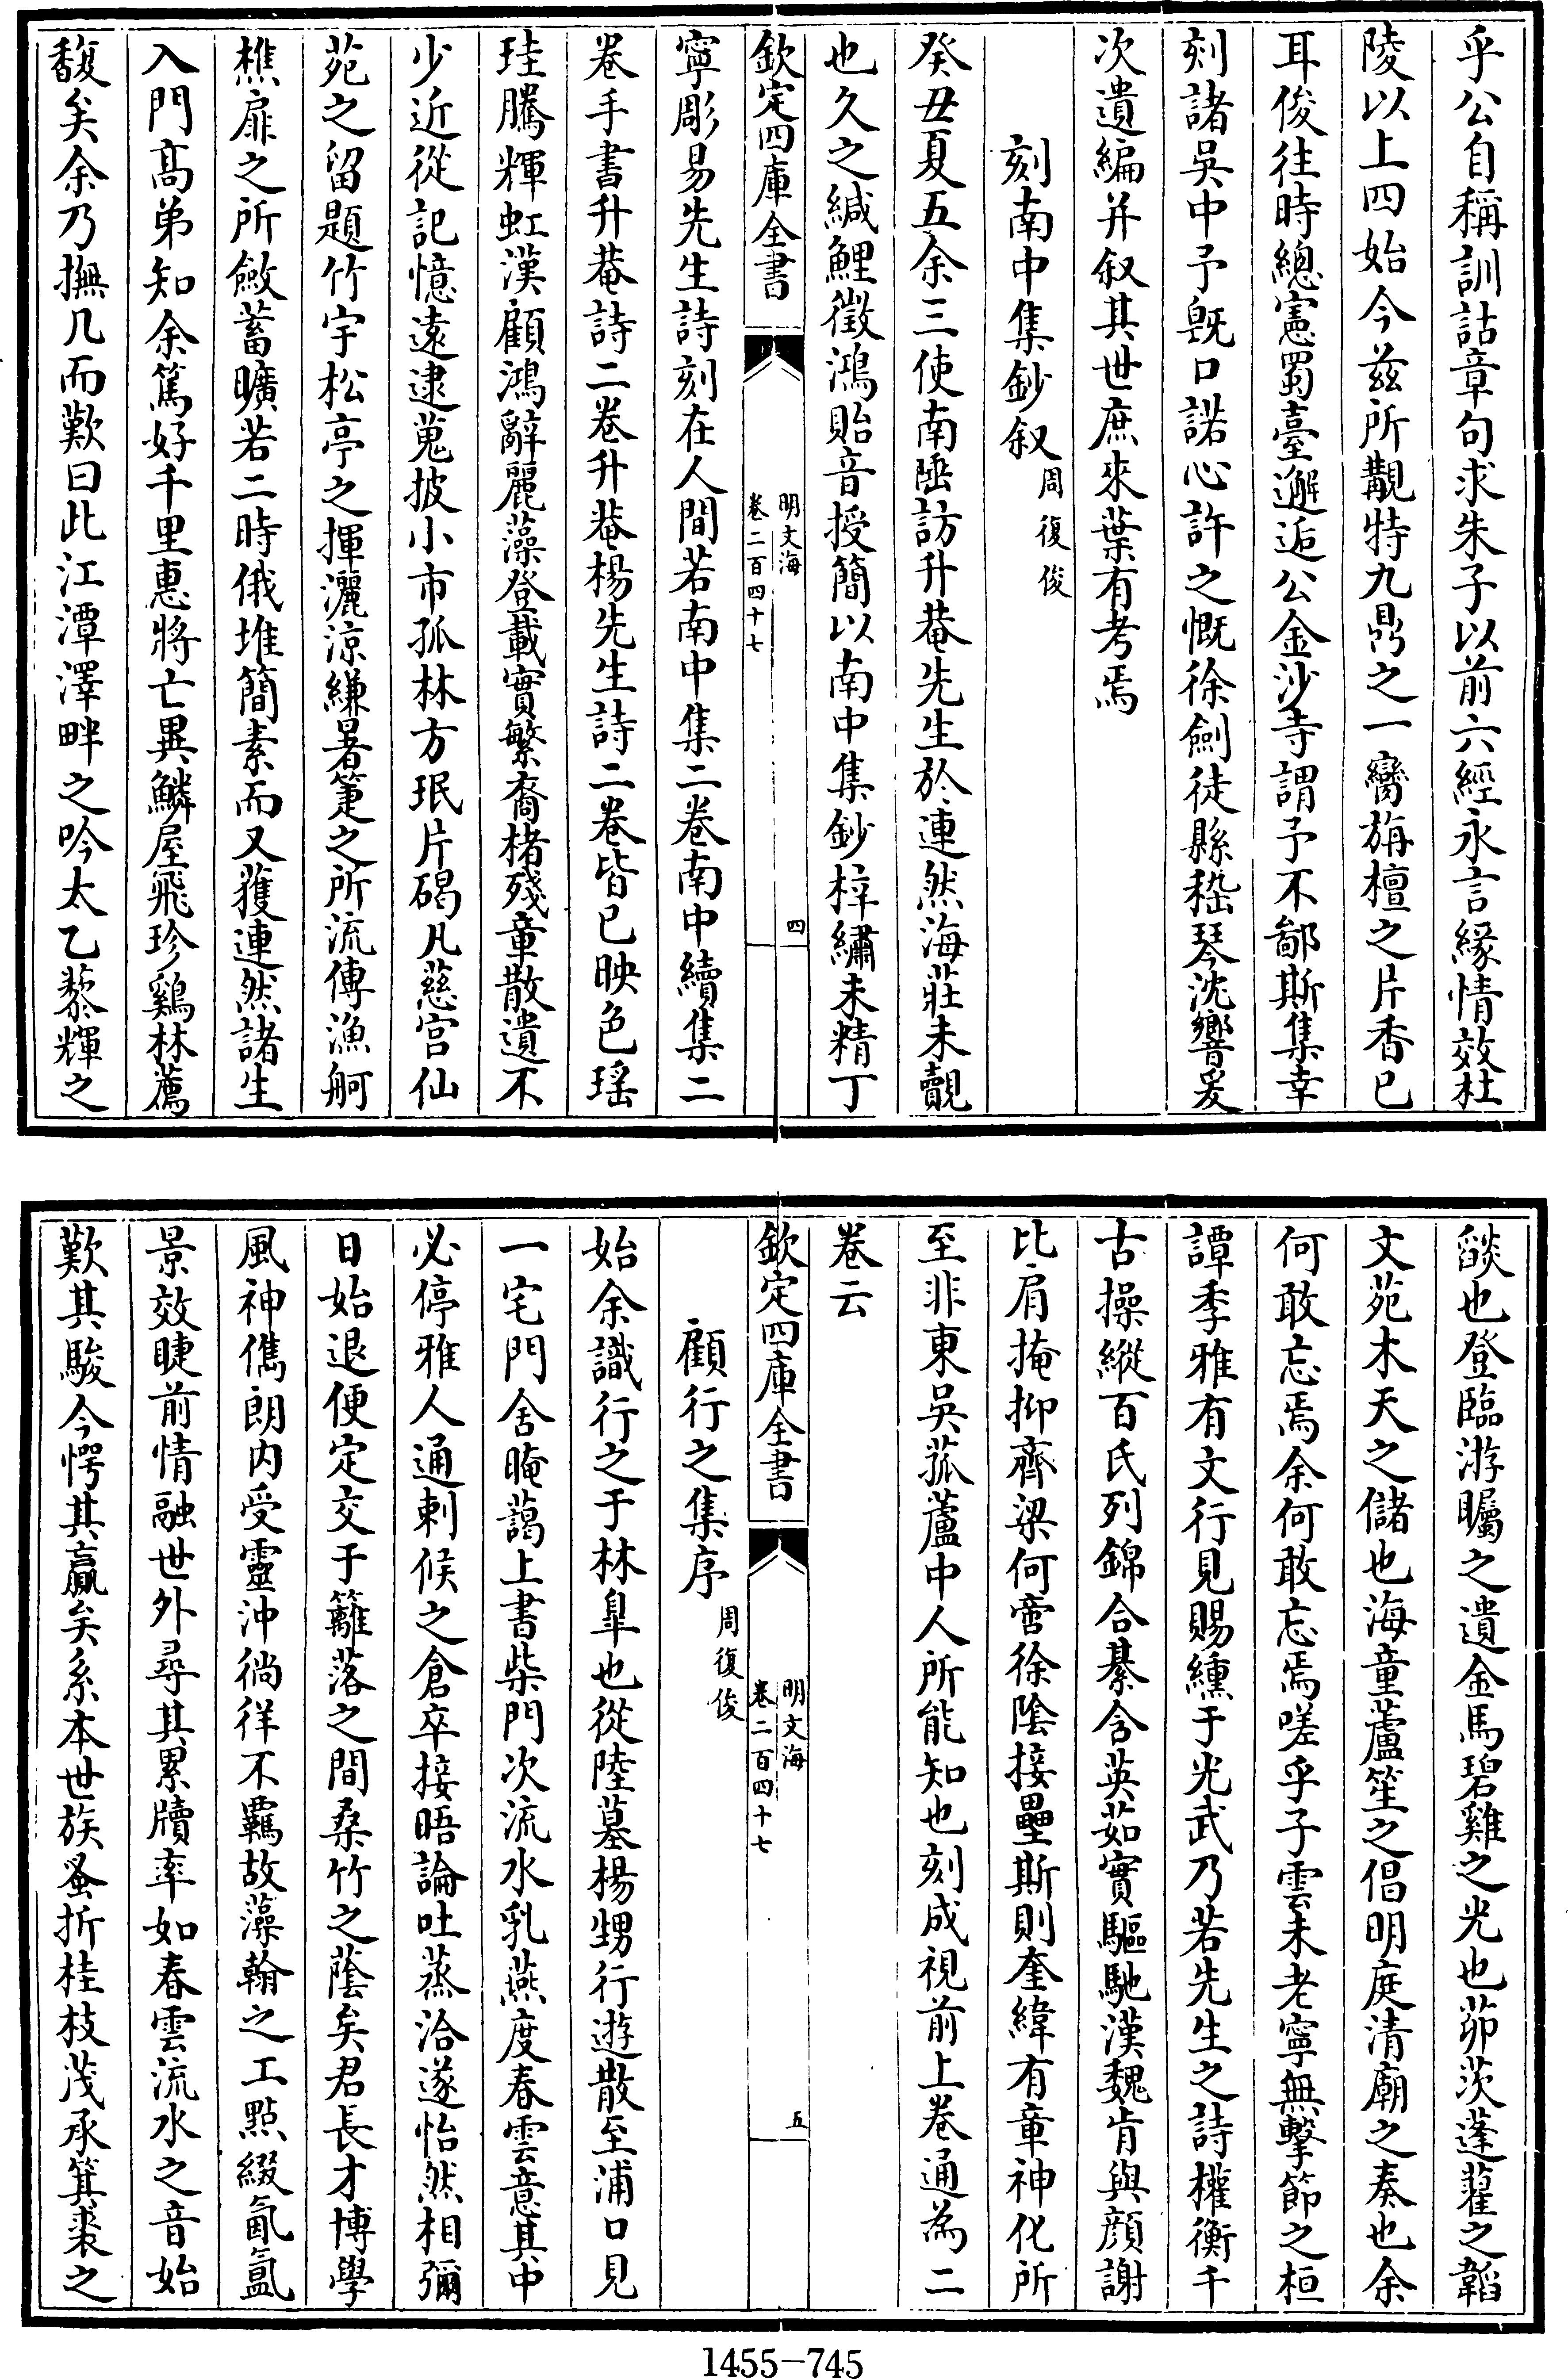 乎公自稱訓詁章句求朱子以前六經永言緣情效杜
陵以上四始今兹所覩特九鼎之一臠旃檀之片香已
耳俊往時總憲蜀臺邂逅公金沙寺謂予不鄙斯集幸
刻諸吳中予既口諾心許之慨徐劍徒縣嵇琴沈響爰
次遺編并叙其世庶來葉有考焉
刻南中集鈔叙周復俊
癸丑夏五余三使南陲訪升菴先生於連然海莊未覿
也久之緘鯉徵鴻貽音授簡以南中集鈔梓繡未精丁
欽定四庫全書
明文海
卷二百四十七
四
寧彫易先生詩刻在人間若南中集二卷南中續集二
卷手書升菴詩二卷升菴楊先生詩二卷皆已映色瑶
珪騰輝虹漢顧鴻辭麗藻登載實繁裔楮殘章散遺不
少近從記憶遠逮蒐披小市孤林方珉片碣凡慈宫仙
苑之留題竹宇松亭之揮灑涼縑暑箑之所流傳漁舸
樵扉之所斂蓄曠若二時俄堆簡素而又獲連然諸生
入門髙弟知余篤好千里惠將亡異鱗屋飛珍鷄林薦
馥矣余乃撫几而歎曰此江潭澤畔之吟太乙藜輝之
燄也登臨游矚之遺金馬碧雞之光也茆茨蓬藋之韜
文苑木天之儲也海童蘆笙之倡明庭清廟之奏也余
何敢忘焉余何敢忘焉嗟乎子雲未老寧無擊節之桓
譚季雅有文行見賜纁于光武乃若先生之詩權衡千
古操縱百氏列錦合綦含英茹實驅馳漢魏肯與顔謝
比肩掩抑齊梁何啻徐陰接壘斯則奎緯有章神化所
至非東吳菰蘆中人所能知也刻成視前上卷通為二
卷云
欽定四庫全書
明文海
卷二百四十七
五
顧行之集序周復俊
始余識行之于林臯也從陸墓楊甥行遊散至浦口見
一宅門舍晻藹上書柴門次流水乳燕度春雲意其中
必停雅人通刺候之倉卒接晤論吐蒸洽遂怡然相彌
日始退便定交于籬落之間桑竹之蔭矣君長才博學
風神儁朗内受靈沖徜徉不羈故藻翰之工點綴氤氲
景效睫前情融世外尋其累牘率如春雲流水之音始
歎其駿今愕其贏矣系本世族蚤折桂枝茂承箕裘之
1455-745